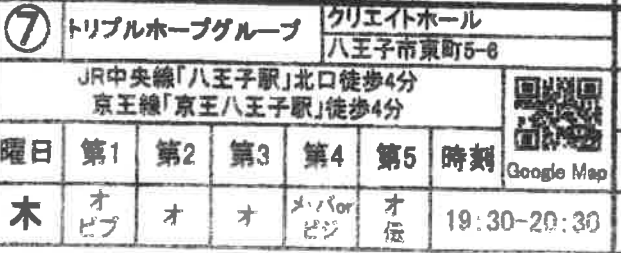 ⑦ トリプルホープグループ クリエイトホール
八王子市東町5-6
JR中央線「八王子駅」北口徒歩4分
京王線「京王八王子駅」徒歩4分
Google Map
曜日 第1 第2 第3 第4 第5 時刻
木 オ オ オ メ・バor オ 19:30-20:30
ビブ ビジ 伝